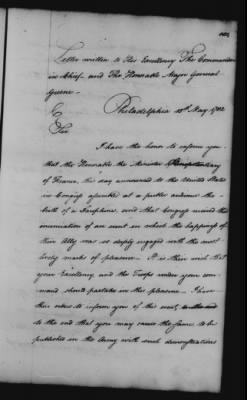 Letter written to His Excellency The Commander
in Chief and The Honorable Major General
Greene —
Philadelphia 13th May 1782
Sir
I have the honor to inform you
that the Honorable the Minister Plenipotentiary
of France, this day announced to the United States
in Congress assembled at a public audience the
birth of a Dauphin, and that Congress received the
annunciation of an event in which the happiness of
their Ally was so deeply engaged with the most
lively marks of pleasure — It is their wish that
your Excellency and the Troops under your com
mand should partake in this pleasure — I have
their orders to inform you of the event,
to the end that you may cause the same to be
published in the Army with such demonstrations